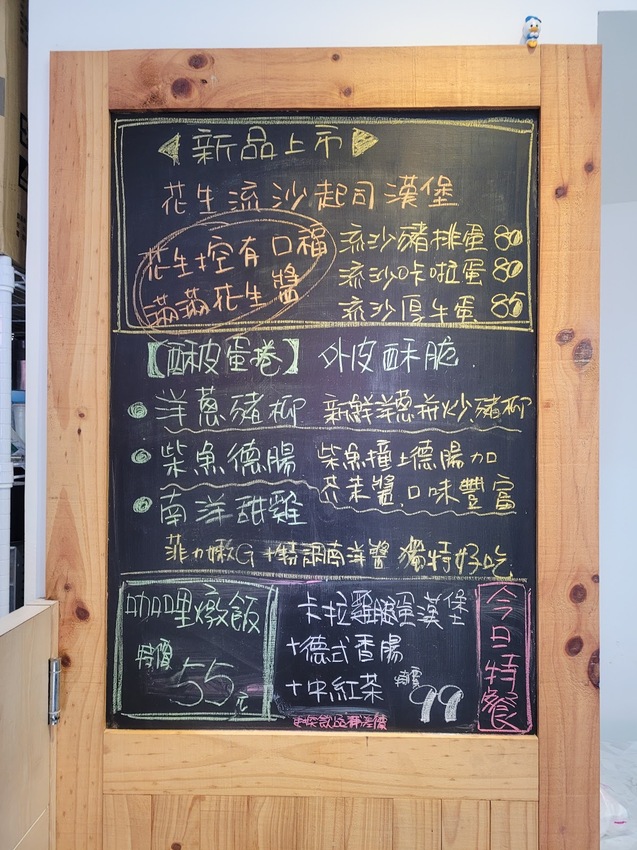 新品上市
花生流沙起司漢堡
花生控有口福
滿滿花生醬
流沙豬排蛋 80
流沙咔啦蛋 80
流沙厚牛蛋 85
【酥皮蛋捲】 外皮酥脆
洋蔥豬柳 新鮮洋蔥拼炒豬柳
柴魚德腸 柴魚撞上德腸加
芥末醬口味豐富
南洋甜雞
菲力嫩G+特調南洋醬 獨特好吃
咖哩燉飯
特價
55元
卡拉雞腿蛋漢堡
+德式香腸
+中紅茶 特價 99
今日特餐